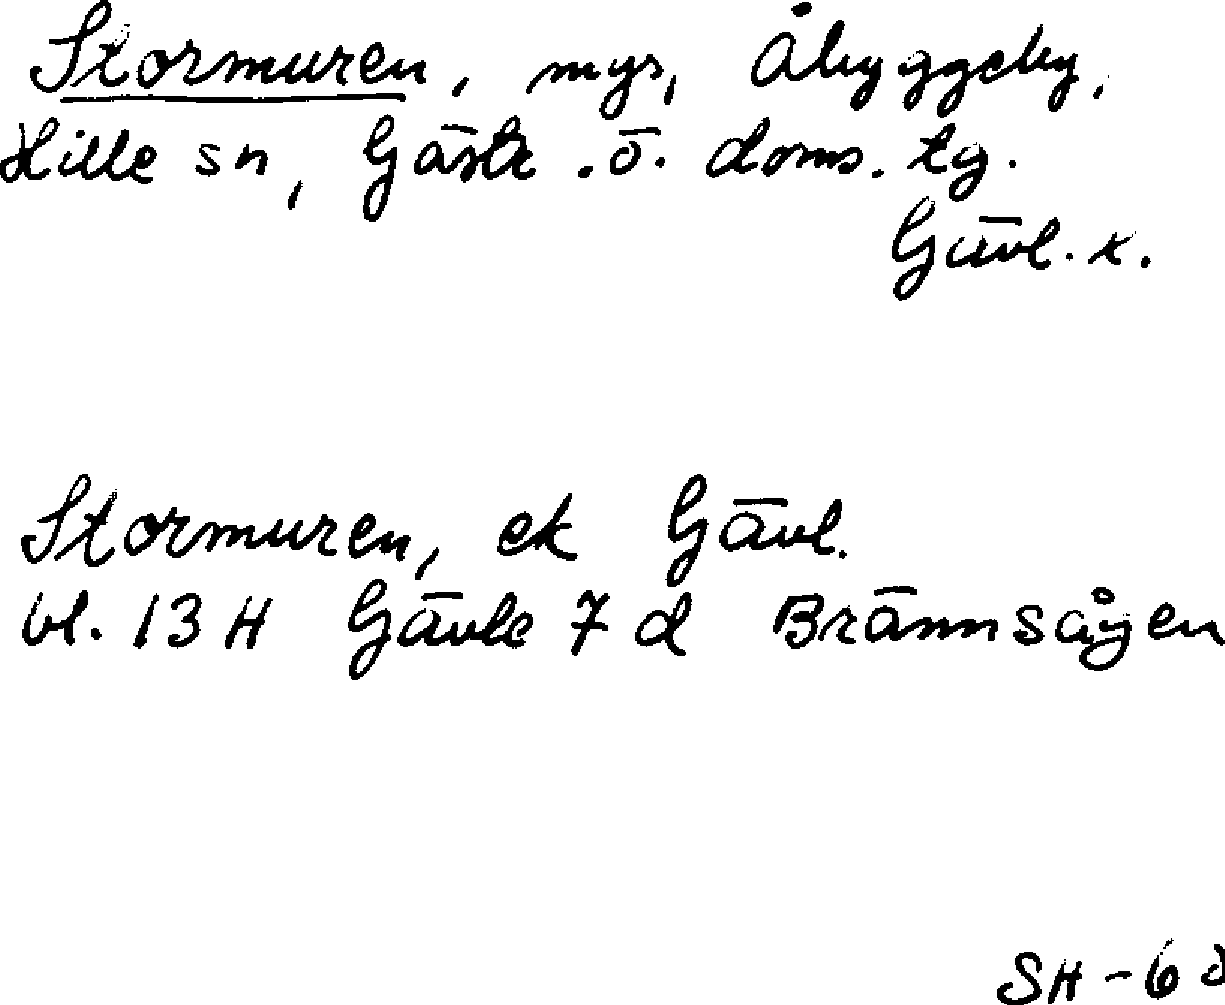 Stormuren, myr, Åbyggeby,
Hille sn, Gästr. ö. doms. tg.
Gävl. k.
Stormuren, ek Gävl.
bl. 13 H Gävle 7 d Brännsågen